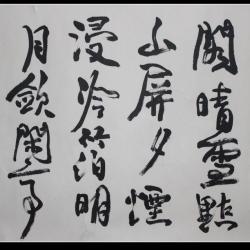 閣晴雪點
山屏夕煙
浸冷箔明
月斂閑亭